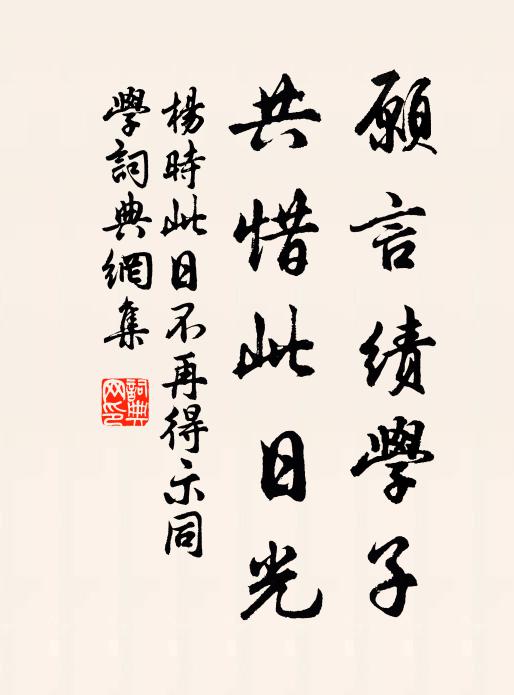 願言績學子
共惜此日光
楊時此日不再得示同
學詞典網集
詞典网印